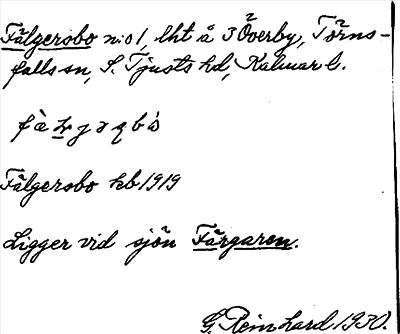 Fälgersbo n:o 1, lht å 3 Överby, Törns-
falls sn, S. Tjusts hd, Kalmar l.
Fälgersbo hb 1919
Ligger vid sjön Färgaren.
G. Reinhard 1930.